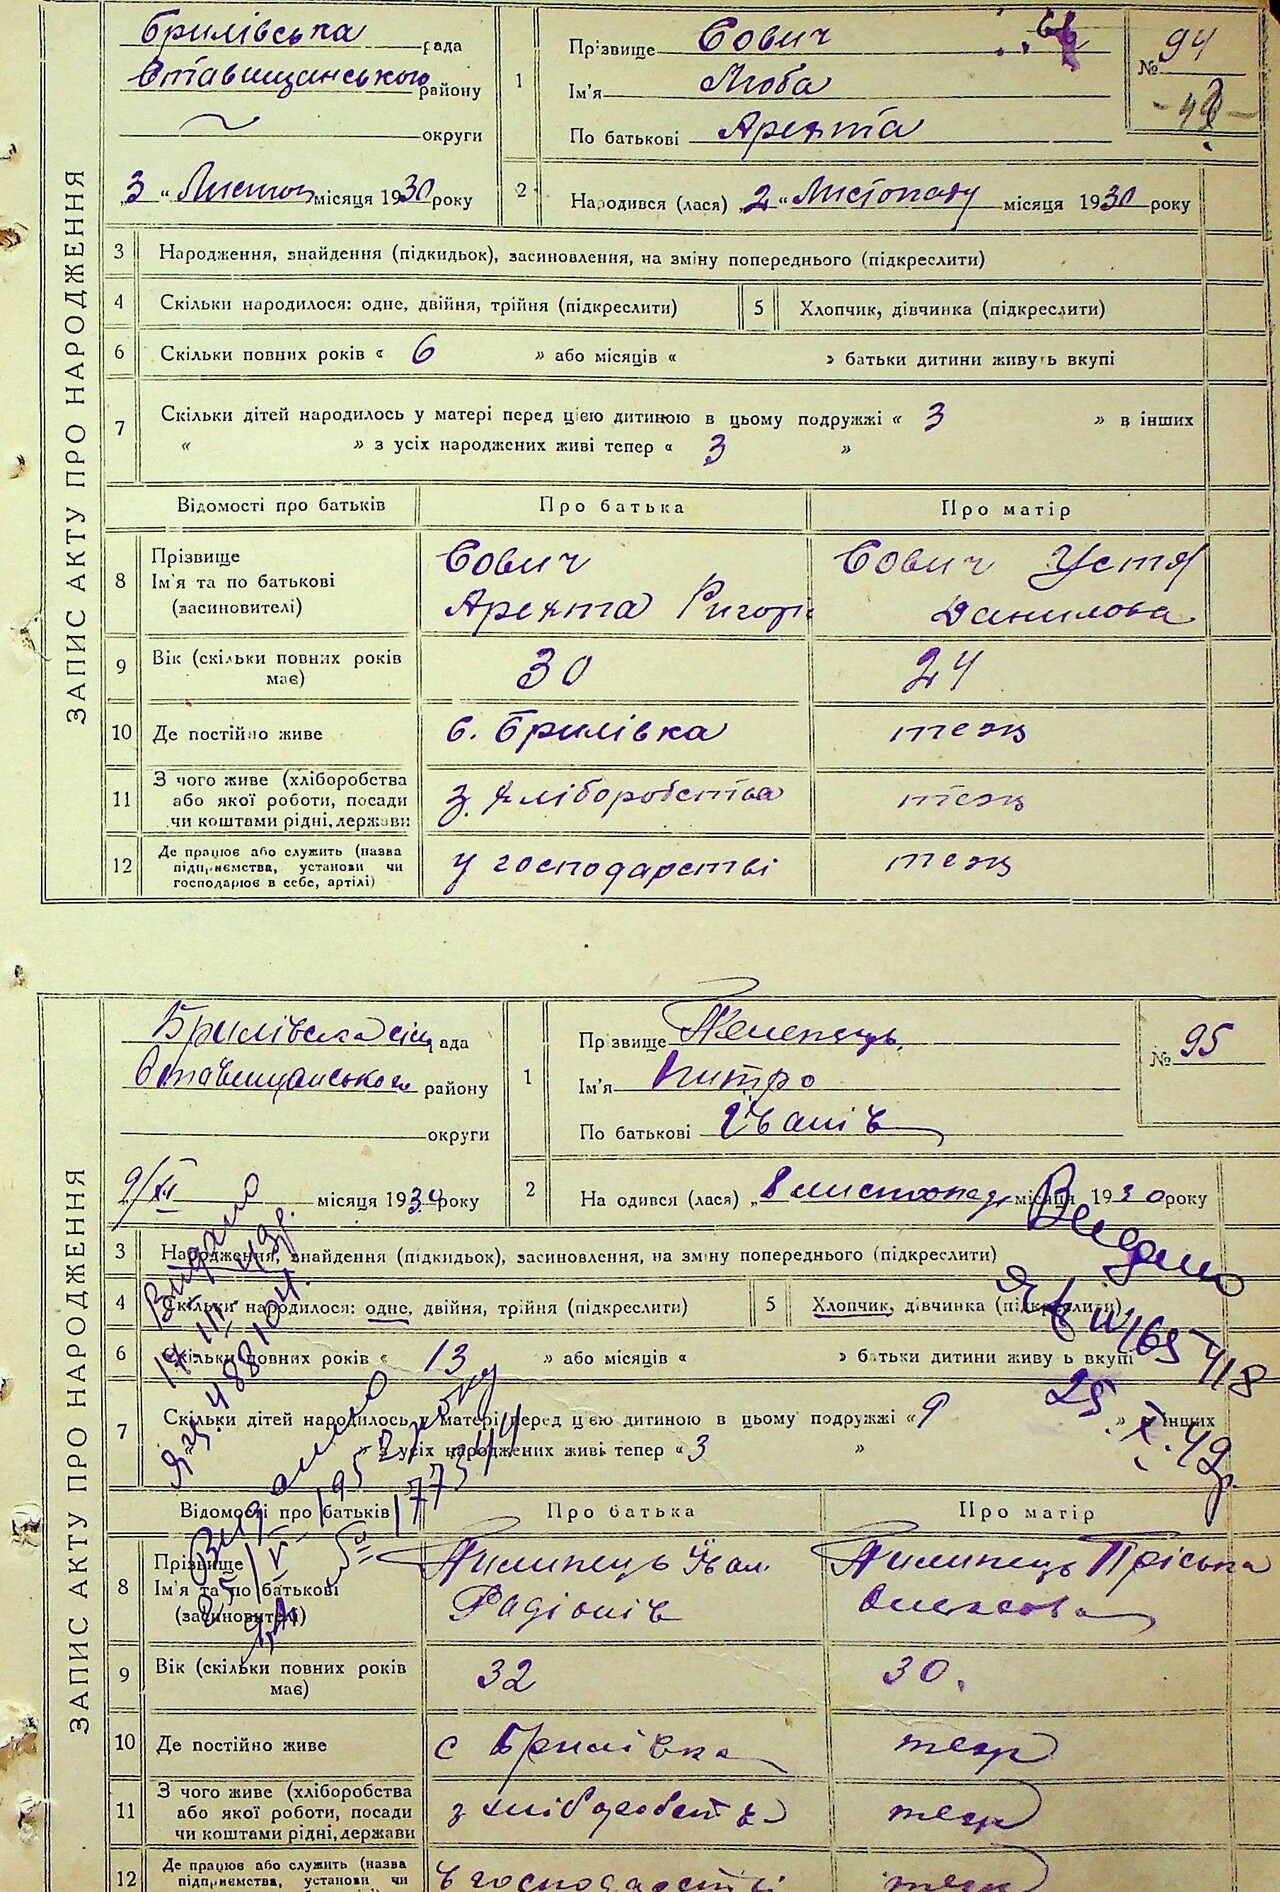 ЗАПИС АКТУ ПРО НАРОДЖЕННЯ
Брилівська рада
Ставищанського району
округи
„3“ Листоп місяця 1930 року
1 Прізвище Сович
Ім'я Люба
По батькові Арехта
№ 94
2 Народився (лася) „2“ Листопаду місяця 1930 року
3 Народження, знайдення (підкидьок), засиновлення, на зміну попереднього (підкреслити)
4 Скільки народилося: одне, двійня, трійня (підкреслити) 5 Хлопчик, дівчинка (підкреслити)
6 Скільки повних років « 6 » або місяців « » батьки дитини живуть вкупі
7 Скільки дітей народилось у матері перед цією дитиною в цьому подружжі « 3 » в інших
« » з усіх народжених живі тепер « 3 »
Відомості про батьків Про батька Про матір
8 Прізвище Ім'я та по батькові (засиновителі) Сович Арехта Ригорі Сович Устя Данилова
9 Вік (скільки повних років має) 30 24
10 Де постійно живе с. Брилівка теж
11 З чого живе (хліборобства або якої роботи, посади чи коштами рідні, держави з хліборобства теж
12 Де працює або служить (назва підприємства, установи чи господарює в себе, артілі) у господарстві теж
ЗАПИС АКТУ ПРО НАРОДЖЕННЯ
Брилівська сіц ада
Ставищанського району
округи
9/XI місяця 1930 року
1 Прізвище Пелепець
Ім'я Питро
По батькові Іванів
№ 95
2 На одився (лася) „8 листопад місяця 1930 року
3 Народження, знайдення (підкидьок), засиновлення, на зміну попереднього (підкреслити)
4 Скільки народилося: одне, двійня, трійня (підкреслити) 5 Хлопчик, дівчинка (підкреслити)
6 Скільки повних років « 13 » або місяців « » батьки дитини живу ь вкупі
7 Скільки дітей народилось у матері перед цією дитиною в цьому подружжі « 9 » в інших
» з усіх народжених живі тепер « 3 »
Видано
25. X. 49р.
Видано
Видано
1952 року
Відомості про батьків Про батька Про матір
8 Прізвище Ім'я та по батькові (засиновителі) Пилипець Іван Радіонів Пилипець Пріська Олексова
9 Вік (скільки повних років має) 32 30.
10 Де постійно живе с Брилівка теж
11 З чого живе (хліборобства або якої роботи, посади чи коштами рідні, держави з хліборобств теж
12 Де працює або служить (назва підприємства, установи чи в господарстві теж